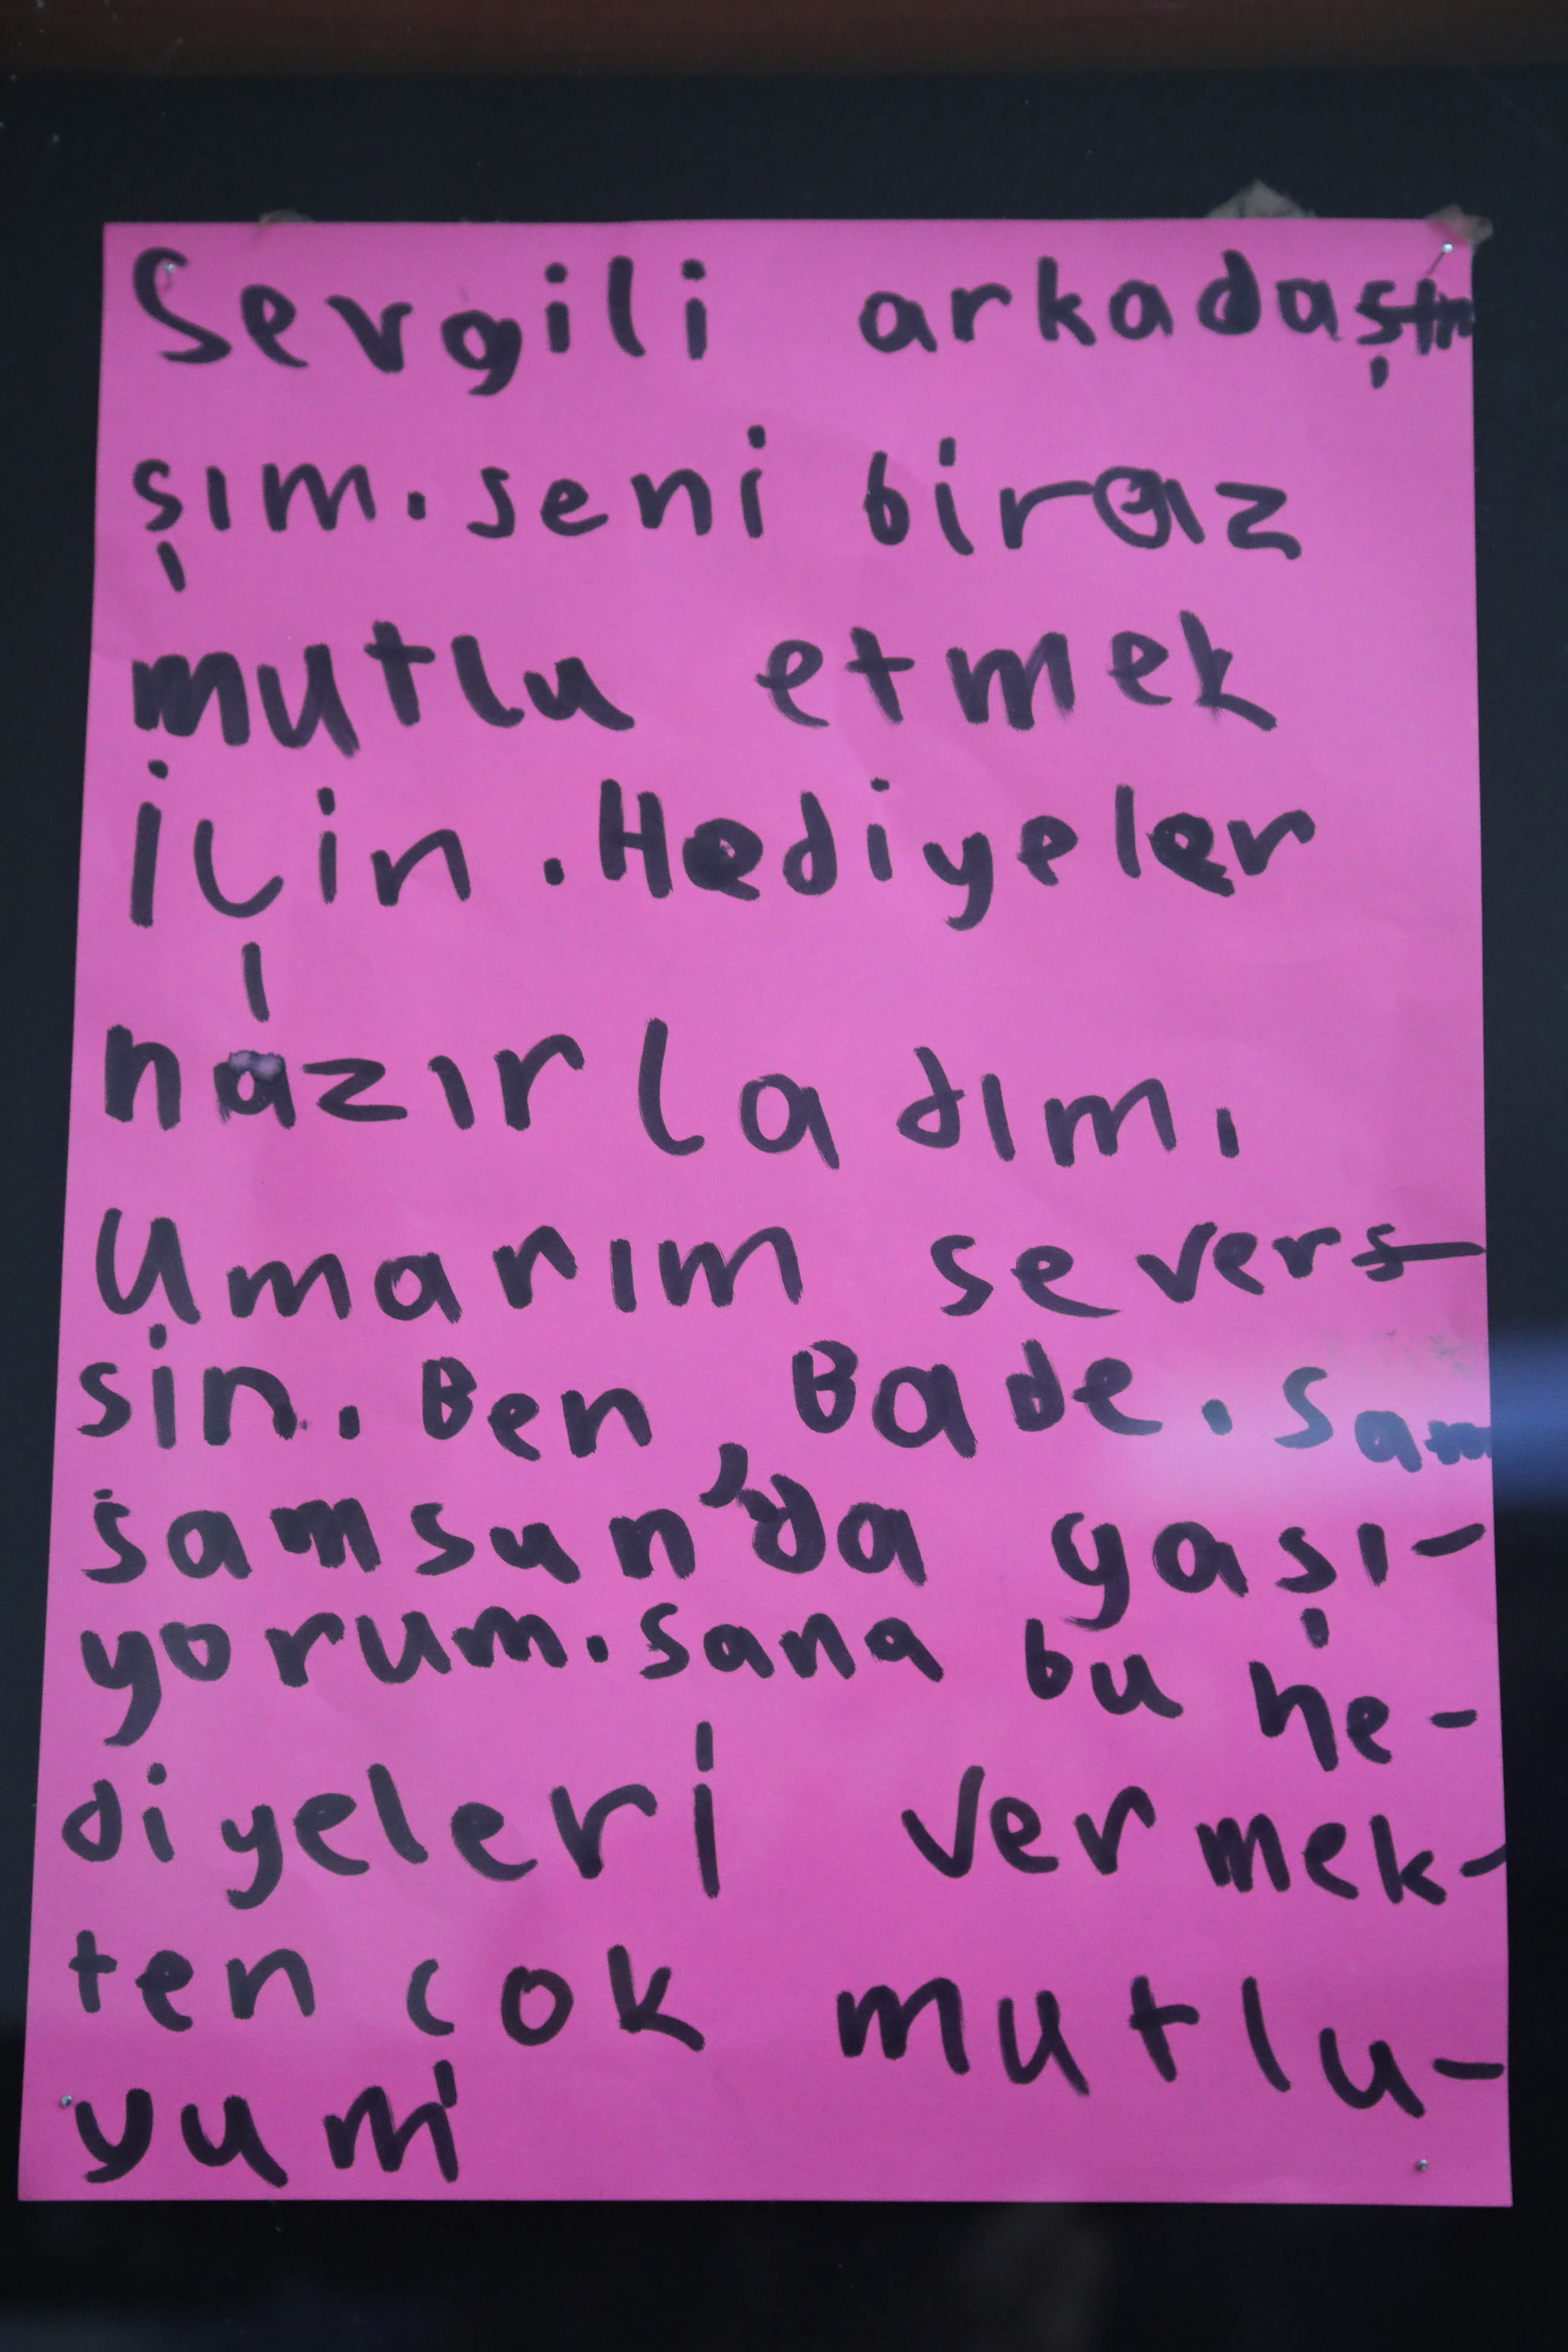 Sevgili arkadaş
şım. seni biraz
mutlu etmek
İçin. Hediyeler
hazırladım.
Umarım severs
sin. Ben, Bade. Sam
samsun'da yaşı-
yorum. sana bu he-
diyeleri vermek-
ten çok mutlu-
yum